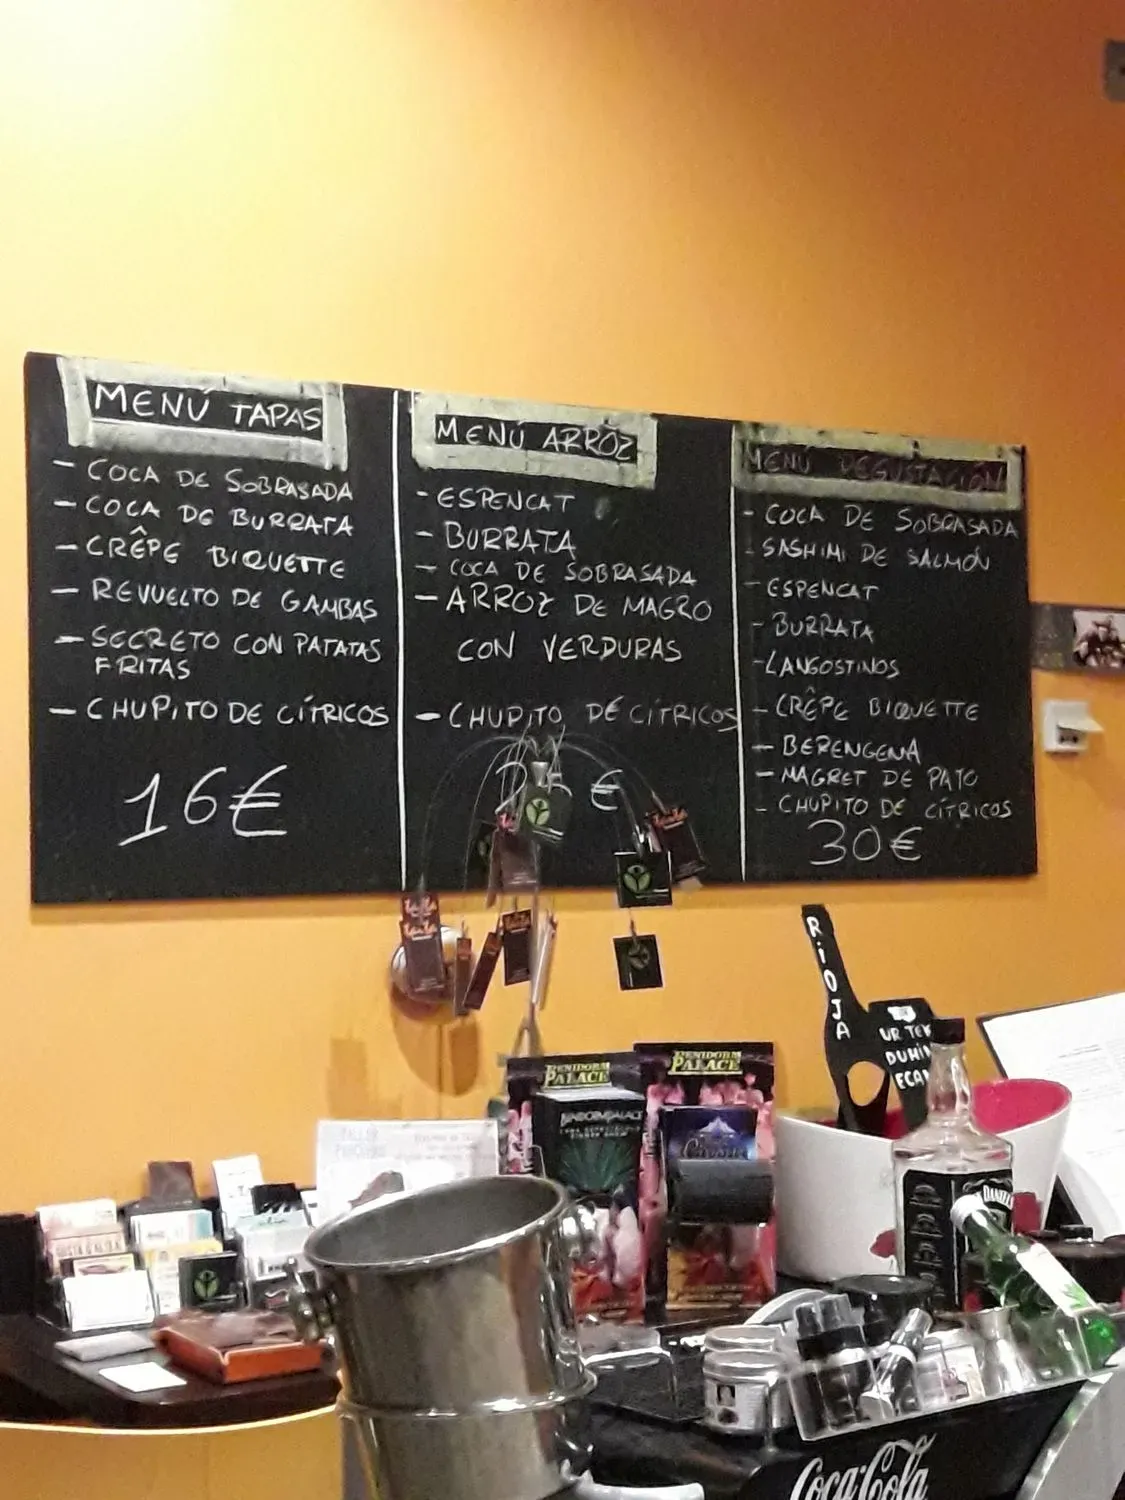 MENÚ TAPAS
- COCA DE SOBRASADA
- COCA DE BURRATA
- CRÊPE BIQUETTE
- REVUELTO DE GAMBAS
- SECRETO CON PATATAS
FRITAS
- CHUPITO DE CÍTRICOS
16€
MENÚ ARROZ
- ESPENCAT
- BURRATA
- COCA DE SOBRASADA
- ARROZ DE MAGRO
CON VERDURAS
- CHUPITO DE CÍTRICOS
€
MENÚ DEGUSTACIÓN
- COCA DE SOBRASADA
- SASHIMI DE SALMÓN
- ESPENCAT
- BURRATA
- LANGOSTINOS
- CRÊPE BIQUETTE
- BERENGENA
- MAGRET DE PATO
- CHUPITO DE CÍTRICOS
30€
RIOJA
BENIDORM
PALACE
BENIDORM PALACE
BENIDORM
PALACE
Coca-Cola